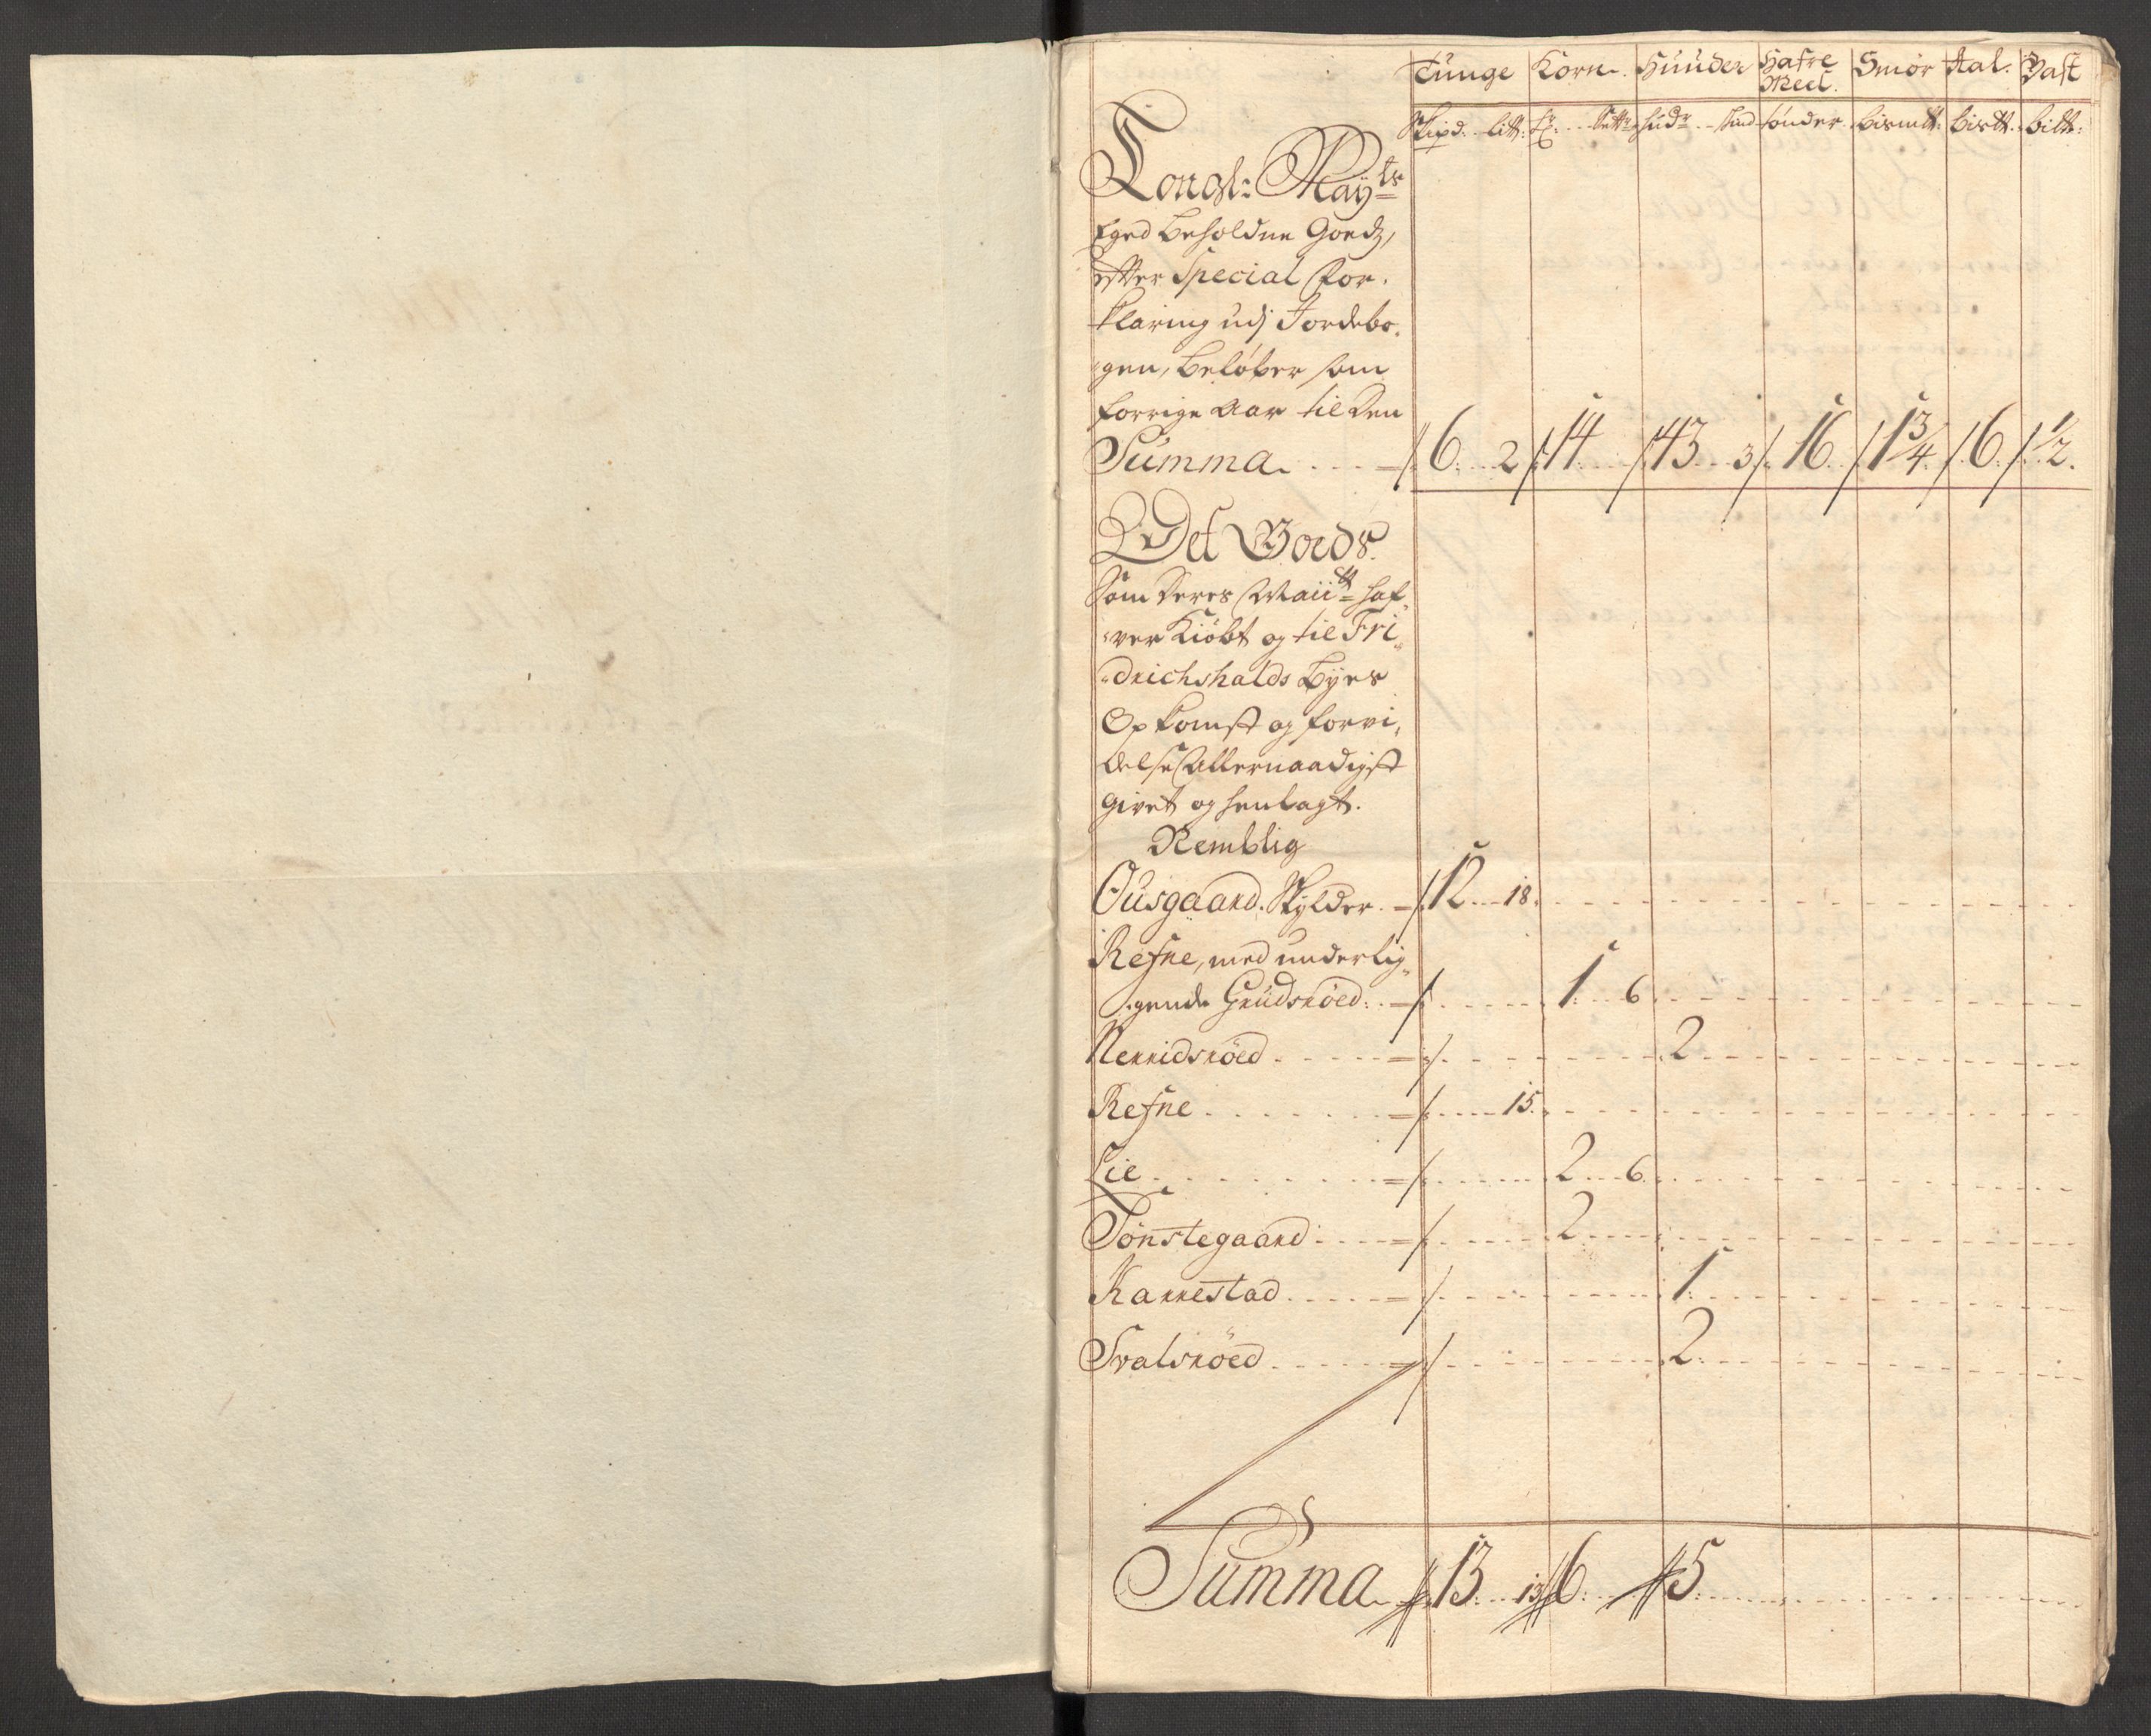 Tunge Korn. Huuder Hafre Meel. Smör Aal. Vast
Skipd. litt: Sett huder Skind tønder bismtt: bistt. bitt:
Kongl: Mayts
Eged beholdne Goedz,
efter Special For-
klaring udj Jordebo-
gen, beløber som
forrige Aar til den
Summa. 6. 2 14 43. 3 16 1 3/4 6 1/2.
Det Goeds.
Som deres Maiitt haf-
ver Kiöbt og til Fri-
drichshalds Byes
Opkomst og forvi-
delse Allernaadigst
givet og henlagt.
Nemblig
Ousgaard. Skylder. 12. 18.
Refne, med underlig-
gende Grüdsröed. 1. 6
Nerridsröed 2
Refne 15.
Lie 2. 6.
Tönstegaard 2
Karrestad 1
Svalsröed 2
Summa 13. 13 6. 5